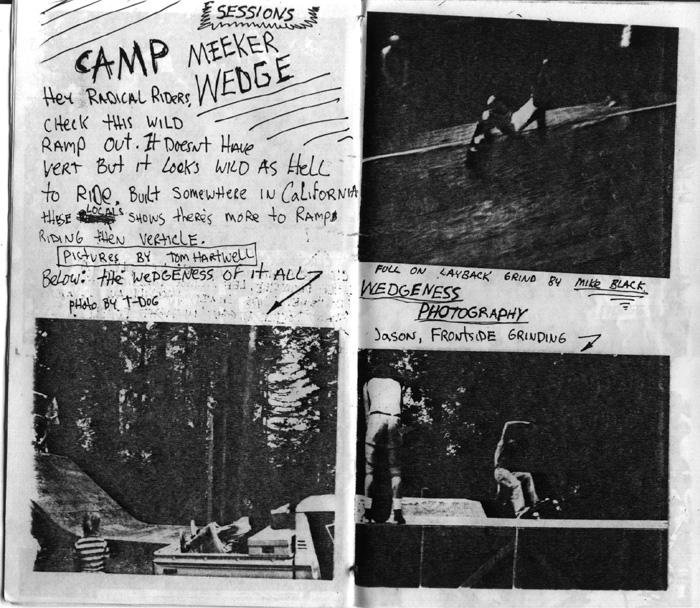 SESSIONS
CAMP MEEKER
WEDGE
HEY RADICAL RIDERS,
CHECK THIS WILD
RAMP OUT. IT DOESNT HAVE
VERT BUT IT LOOKS WILD AS HELL
TO RIDE, BUILT SOMEWHERE IN CALIFORNIA
THESE LOCALS SHOWS THERES MORE TO RAMP
RIDING THEN VERTICLE.
PICTURES BY TOM HARTWELL
BELOW: THE WEDGENESS OF IT ALL
PHOTO BY T-DOG
FULL ON LAYBACK GRIND BY MIKE BLACK
WEDGENESS
PHOTOGRAPHY
JASON, FRONTSIDE GRINDING